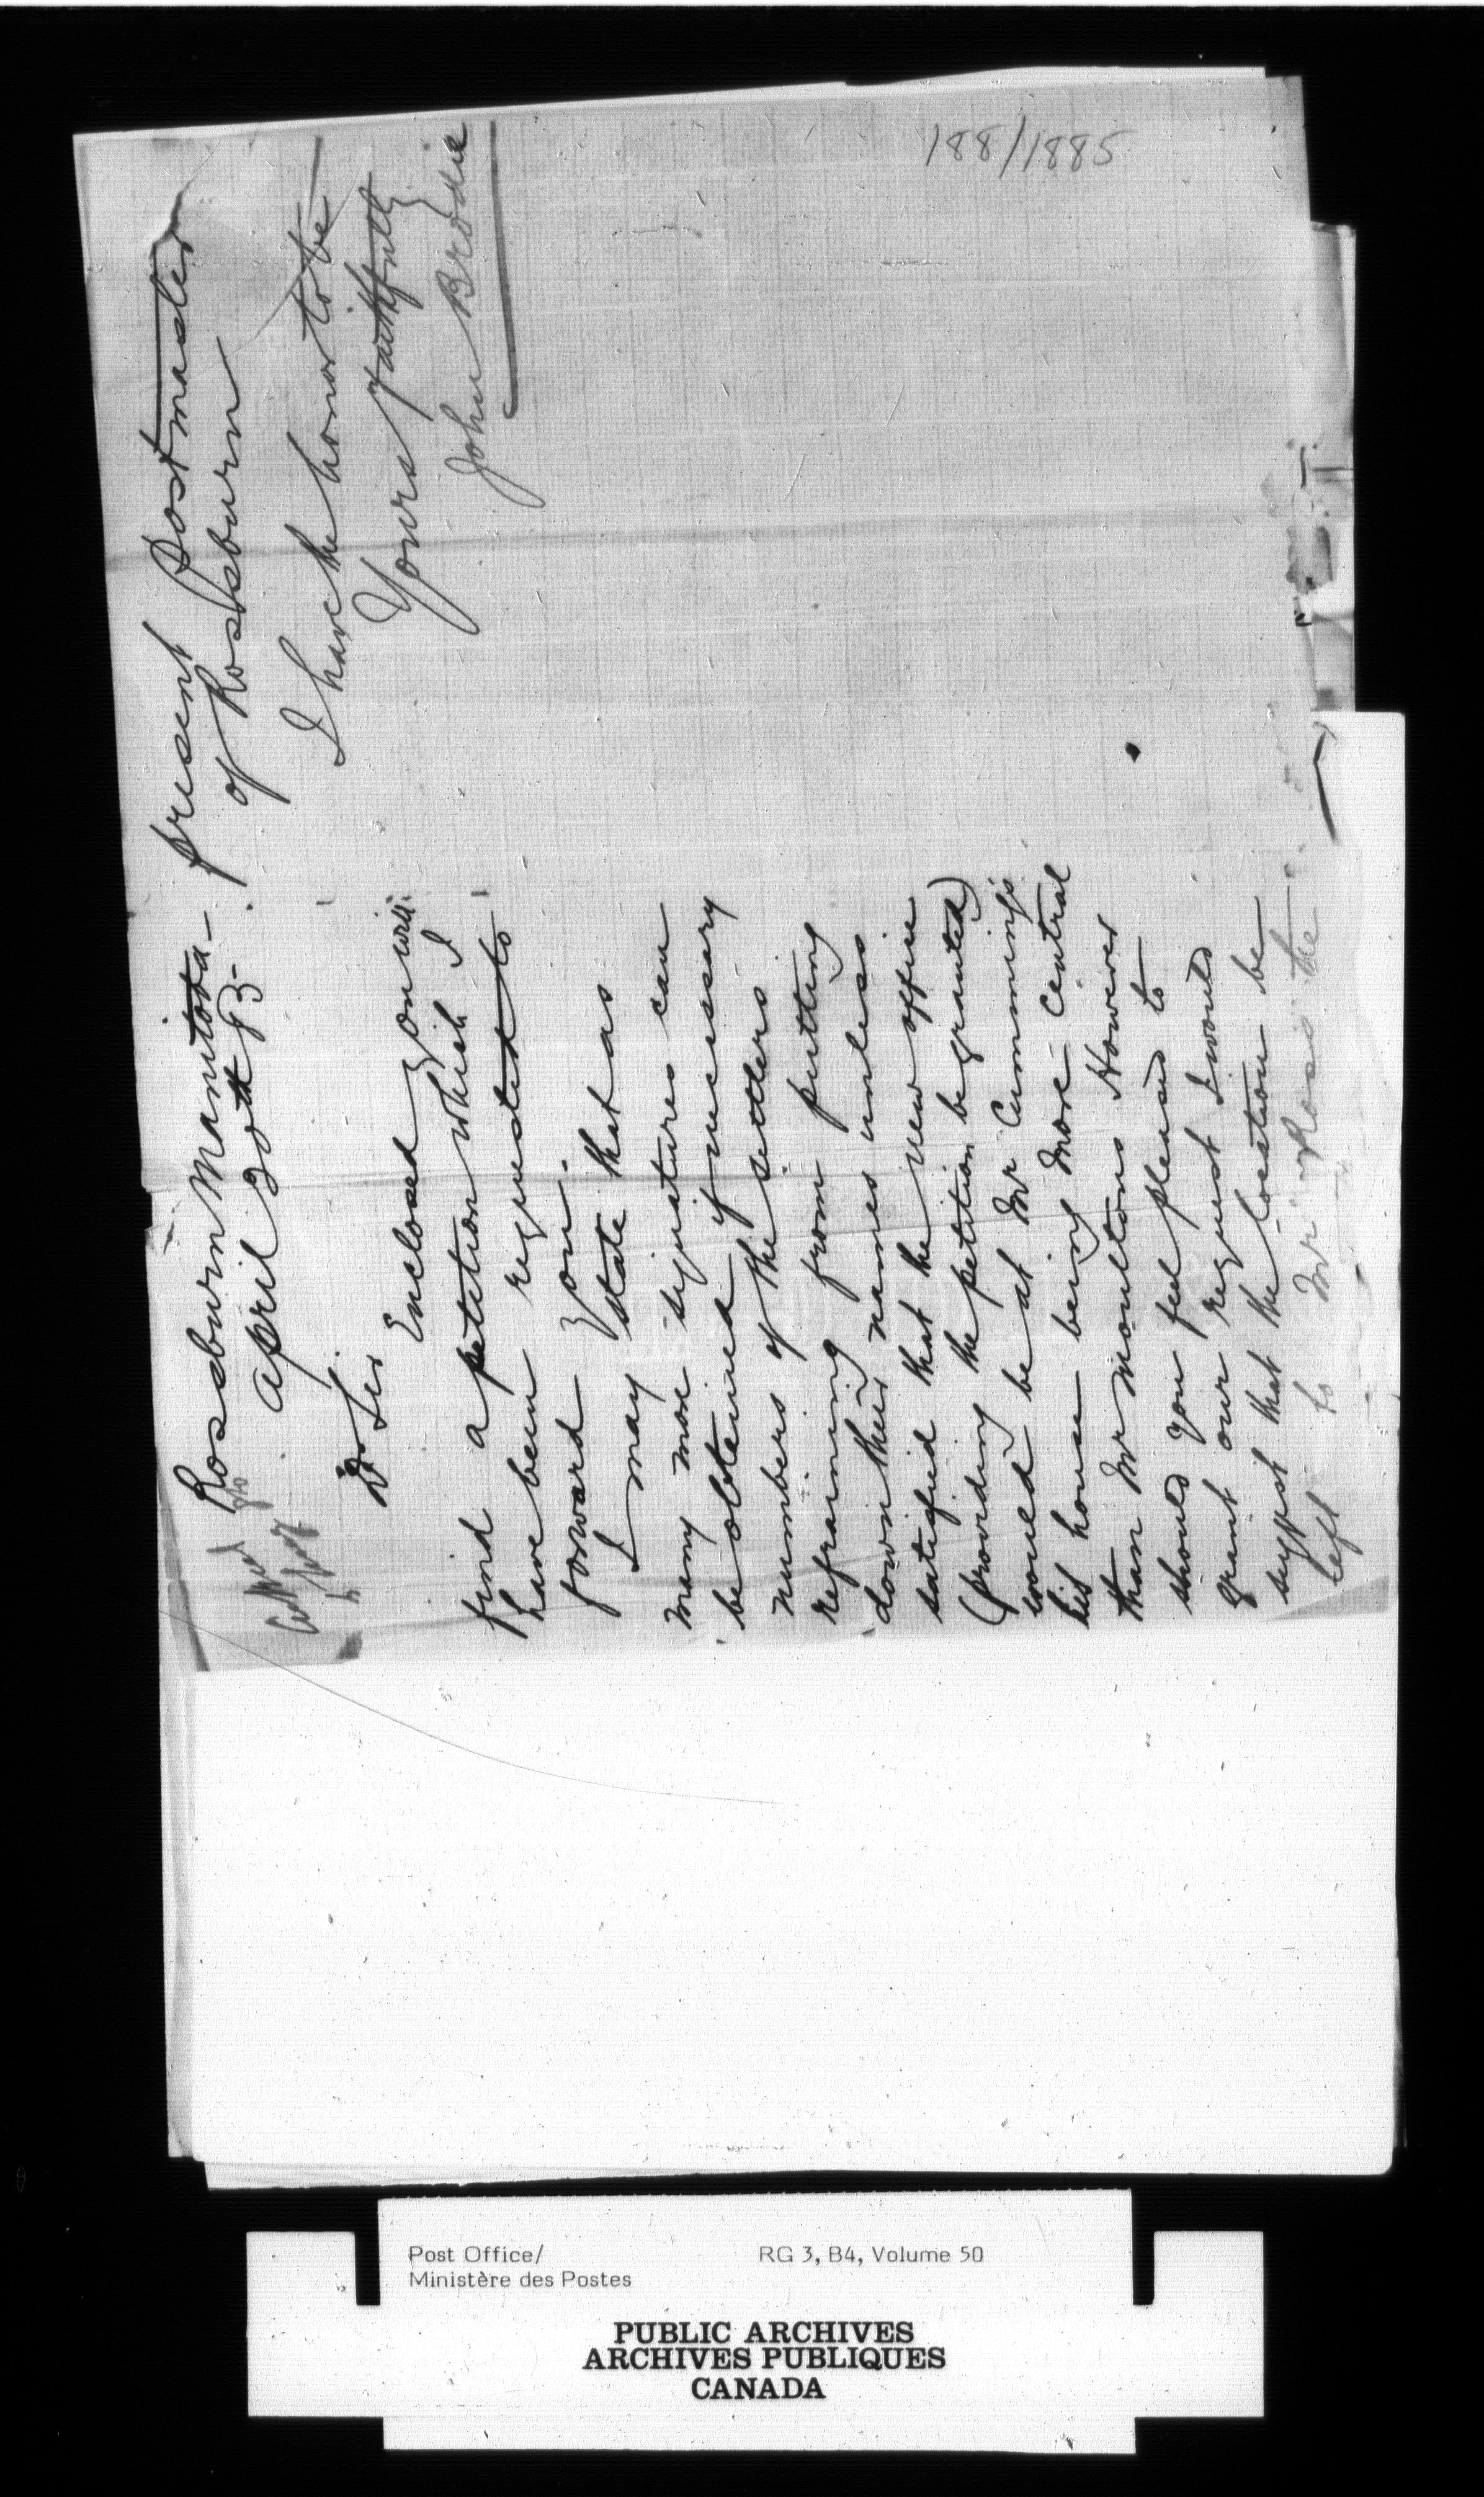 Rossburn Manitoba
April 30th 83
Dr Sir
Enclosed you will
find a petition which I
have been requested to
forward you.
I may state that as
many more signatures can
be obtained if necessary
numbers of the settlers
refraining from putting
down their names unless
satisfied that the new office
(providing the petition be granted)
would be at Mr Cummings
his house being more central
than Mr Moultons However
should you feel pleased to
grant our request I would
suggest that the location be
left to Mr Rose the
present Postmaster
of Rossburn
I have the honor to be
Yours faithfully
John Brodie
188/1885
Post Office/
Ministère des Postes
RG 3, B4, Volume 50
PUBLIC ARCHIVES
ARCHIVES PUBLIQUES
CANADA